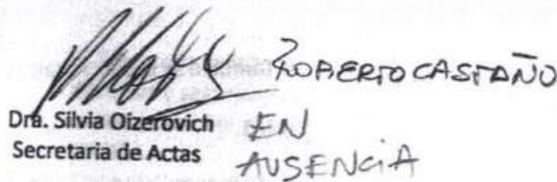 ROBERTO CASTAÑO
Dra. Silvia Oizerovich
EN
Secretaria de Actas
AUSENCIA